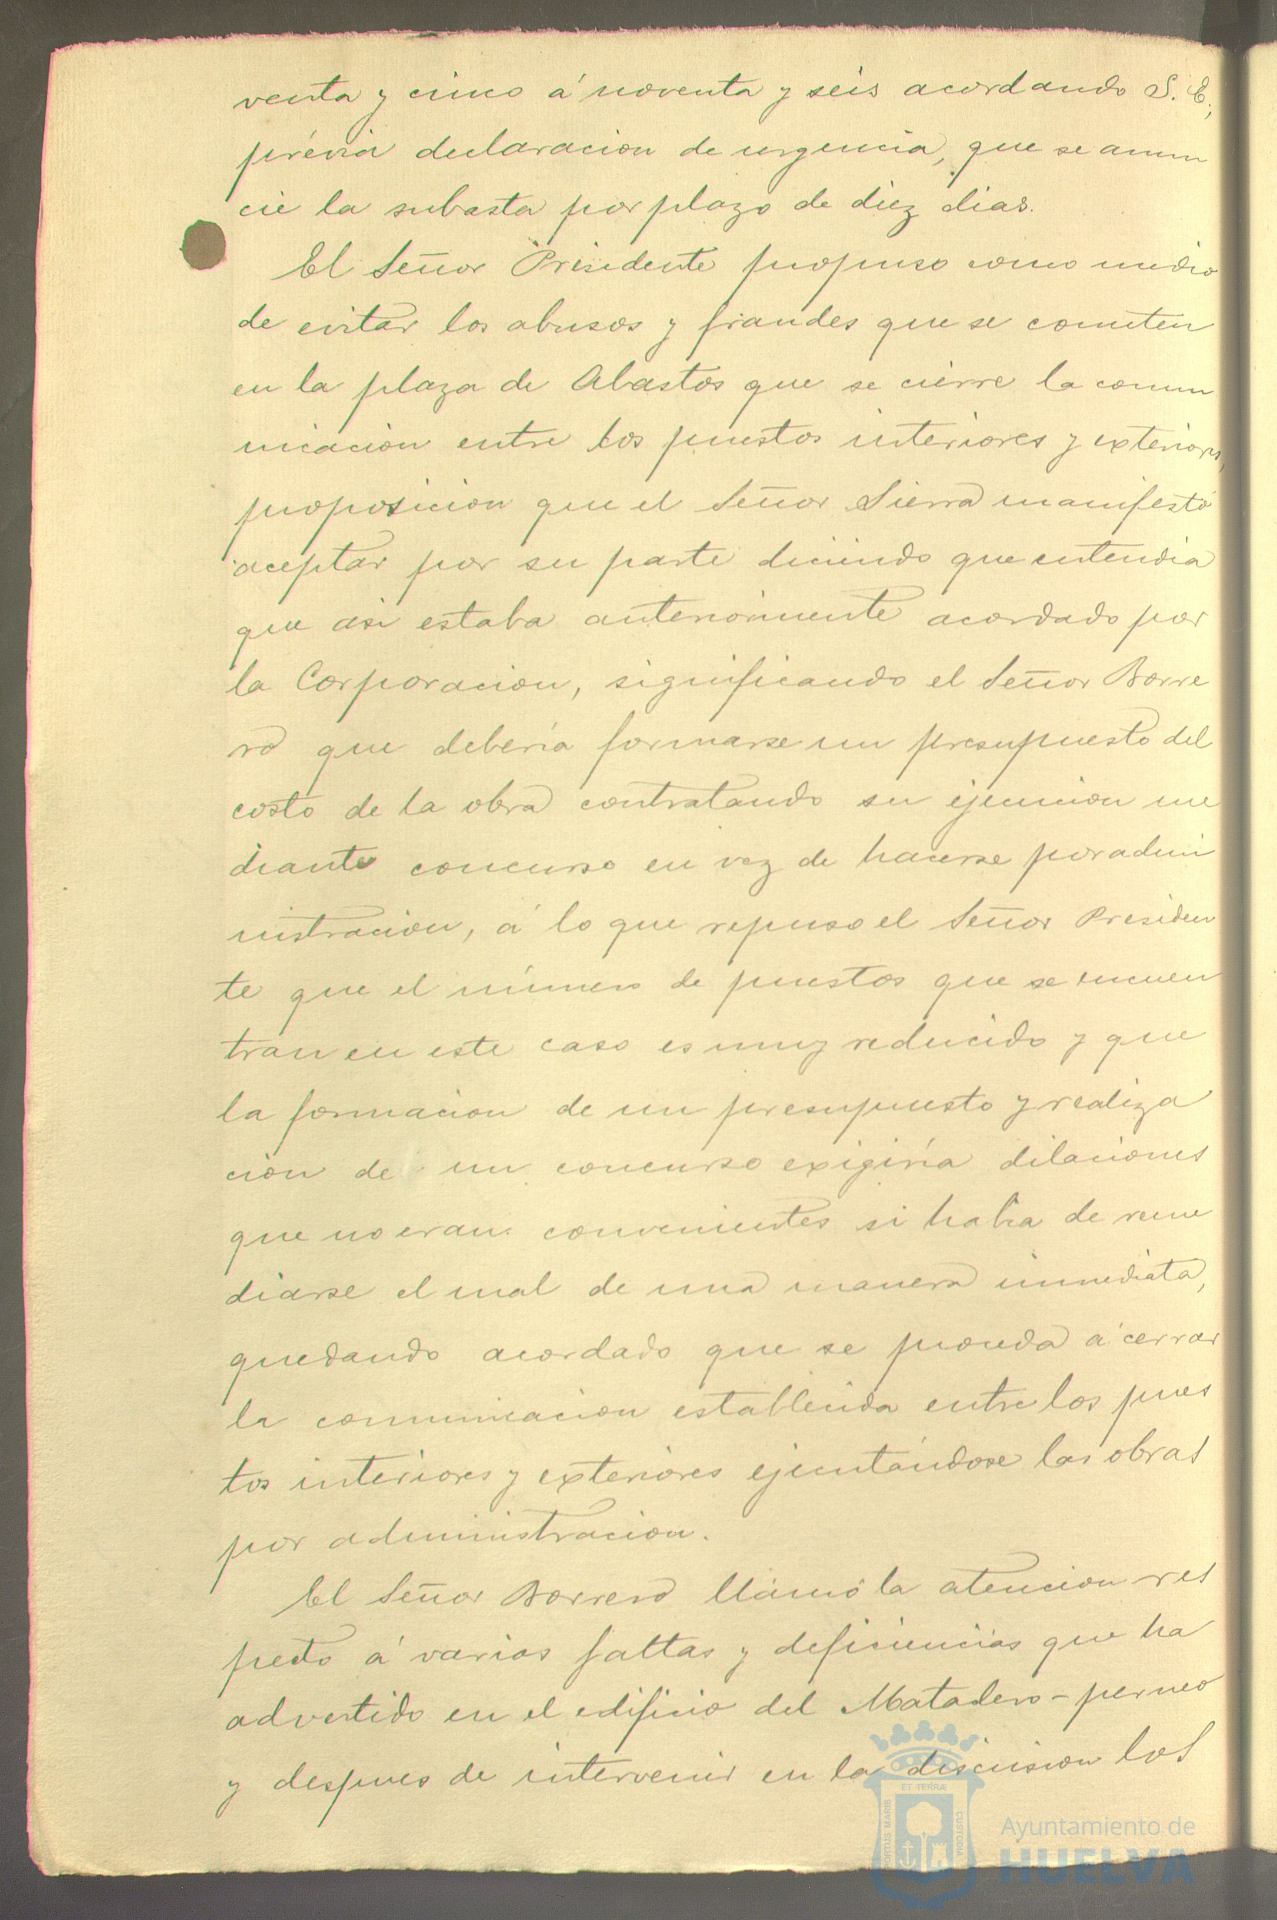 venta y cinco á noventa y seis acordando S. E,
prévia declaracion de urgencia, que se anun
cie la subasta por plazo de diez dias.
El Señor Presidente propuso como medio
de evitar los abusos y fraudes que se cometen
en la plaza de Abastos que se cierre la comu
nicacion entre los puestos interiores y exteriores,
proposicion que el Señor Sierra manifestó
aceptar por su parte diciendo que entendia
que asi estaba anteriormente acordado por
la Corporacion, significando el Señor Borre
ro que debería formarse un presupuesto del
costo de la obra contratando su ejecucion me
diante concurso en vez de hacerse por admi
nistracion, á lo que repuso el Señor Presiden
te que el número de puestos que se encuen
tran en este caso es muy reducido y que
la formacion de un presupuesto y realiza
cion de un concurso exigiría dilaciones
que no eran convenientes si habia de reme
diarse el mal de una manera inmediata,
quedando acordado que se proceda á cerrar
la comunicacion establecida entre los pues
tos interiores y exteriores ejecutándose las obras
por administracion.
El Señor Borrero llamó la atencion res
pecto á varias faltas y deficiencias que ha
advertido en el edificio del Matadero-perneo
y despues de intervenir en la discusion los
PORTUS MARIS
ET TERRÆ
CUSTODIA
Ayuntamiento de
HUELVA